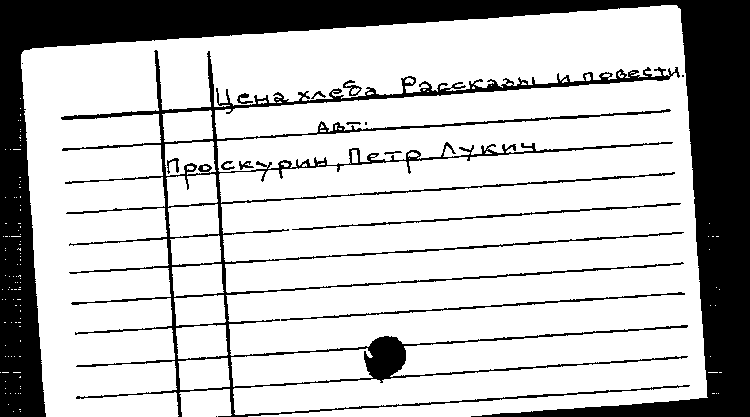 Цена хлеба. Рассказы и повести.
Авт.:
Проскурин, Петр Лукич